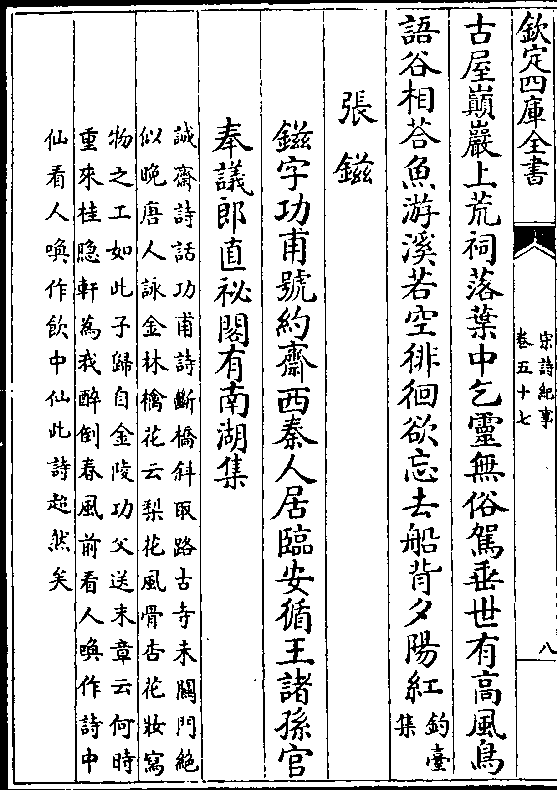 欽定四庫全書
宋詩紀事
卷五十七
八
古屋巔巖上荒祠落葉中乞靈無俗駕垂世有高風鳥
語谷相荅魚游溪若空徘徊欲忘去船背夕陽紅
釣臺
集
張鎡
鎡字功甫號約齋西秦人居臨安循王諸孫官
奉議郎直祕閣有南湖集
誠齋詩話功甫詩斷橋斜取路古寺未關門絶
似晚唐人詠金林檎花云梨花風骨杏花妝寫
物之工如此予歸自金陵功父送末章云何時
重來桂隐軒為我醉倒春風前看人喚作詩中
仙看人喚作飲中仙此詩超然矣